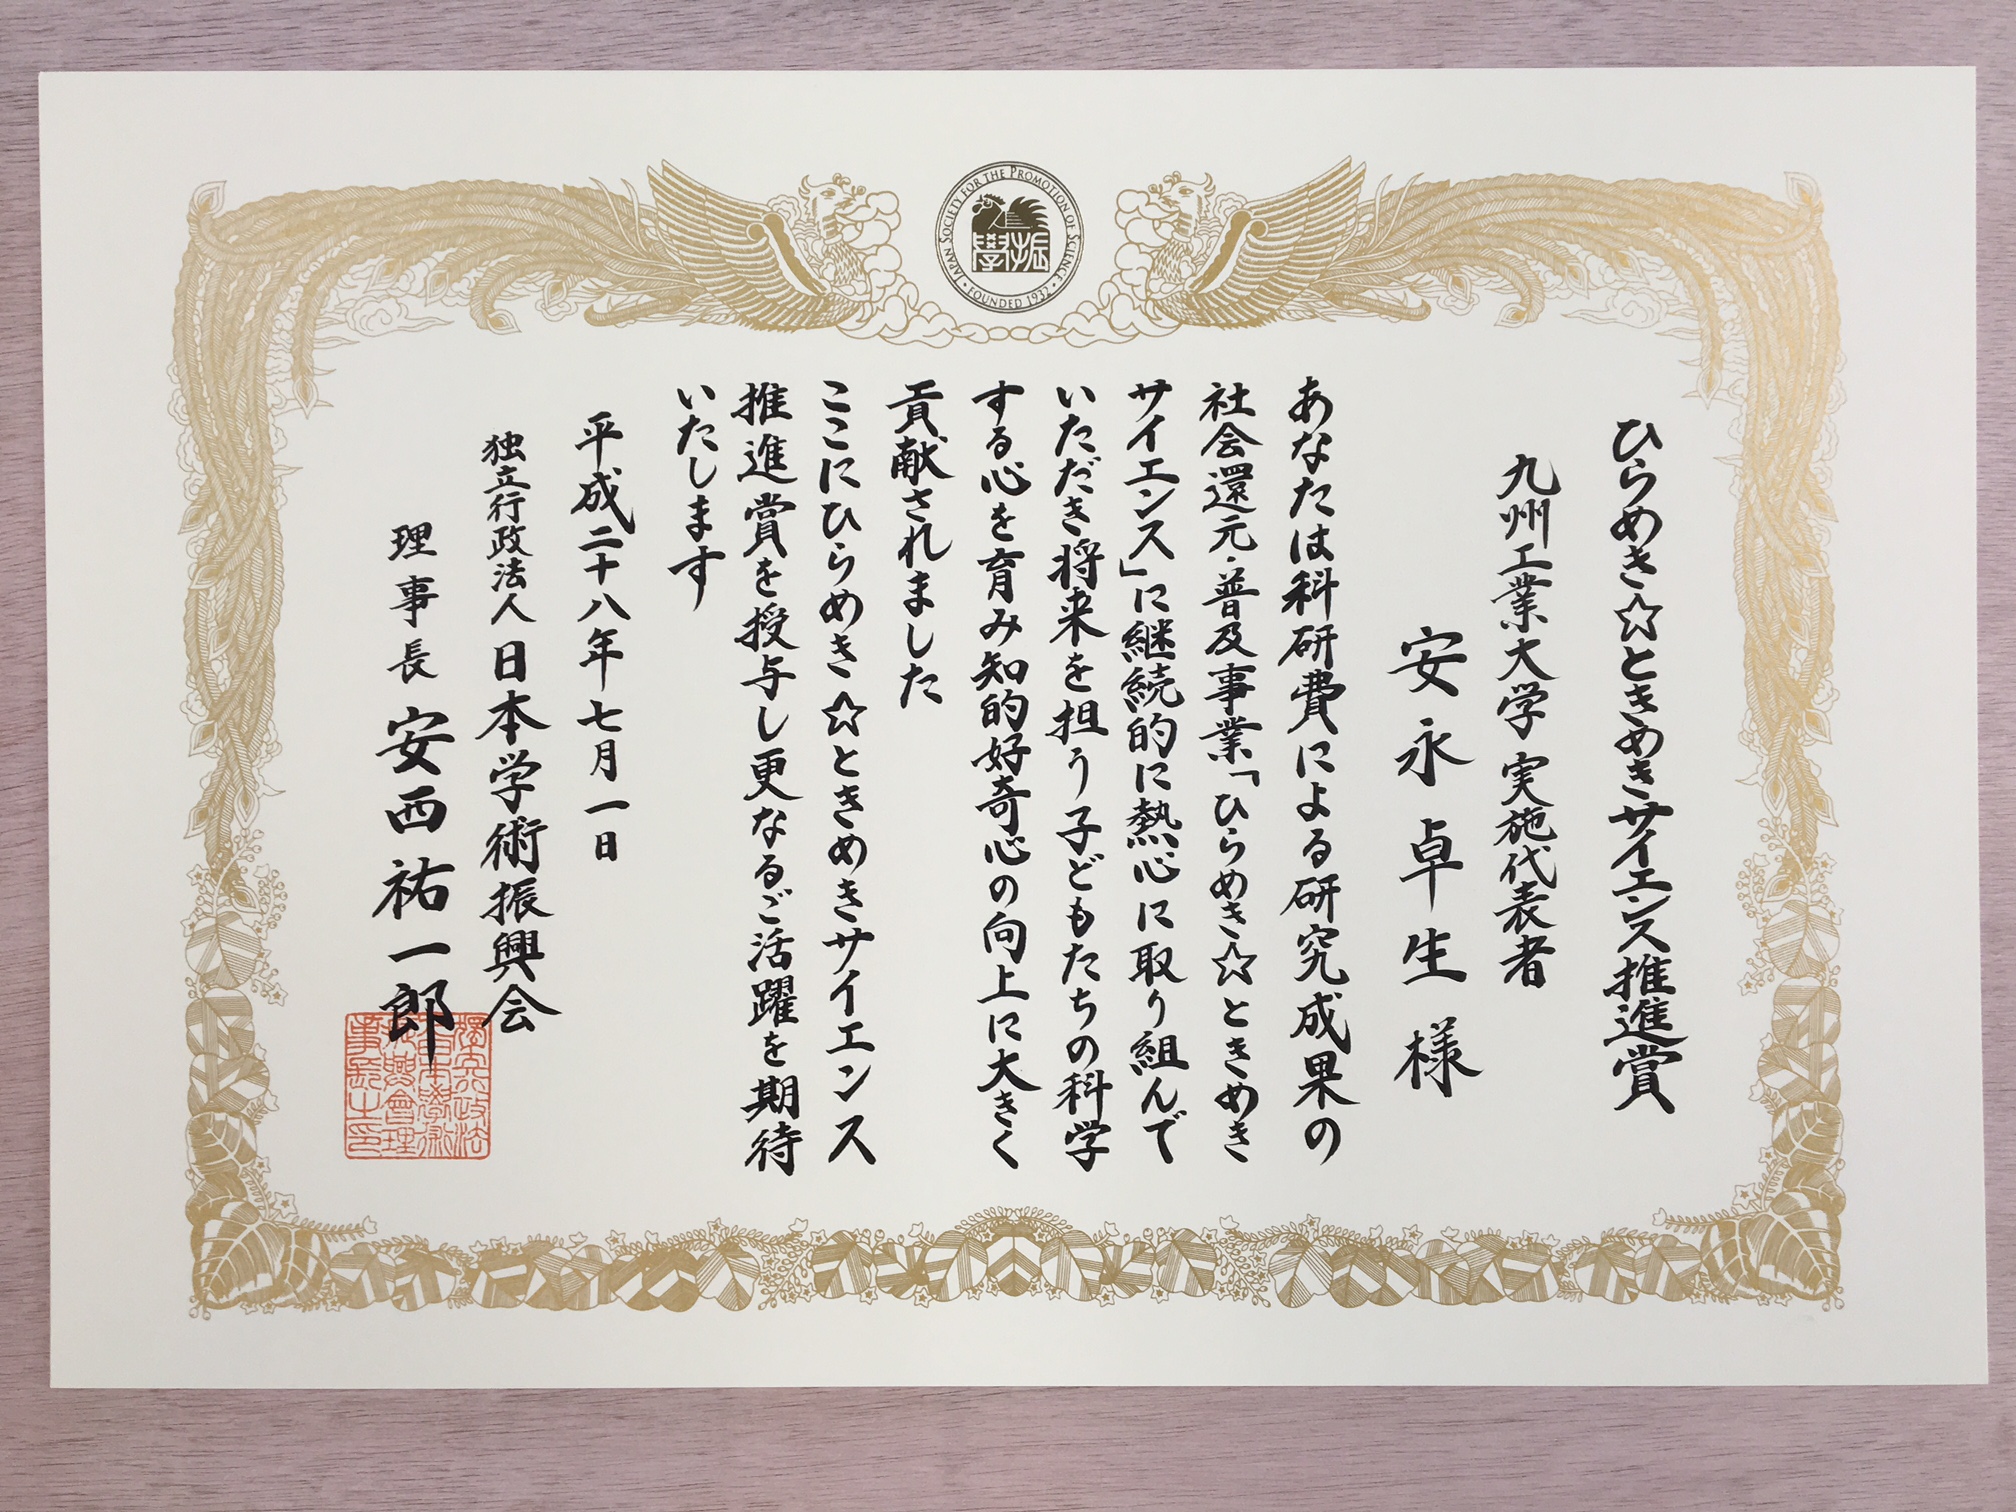 JAPAN SOCIETY FOR THE PROMOTION OF SCIENCE
・FOUNDED 1932・
學術振
ひらめき☆ときめきサイエンス推進賞
九州工業大学 実施代表者
安永卓生様
あなたは科研費による研究成果の
社会還元・普及事業「ひらめき☆ときめき
サイエンス」に継続的に熱心に取り組んで
いただき将来を担う子どもたちの科学
する心を育み知的好奇心の向上に大きく
貢献されました
ここにひらめき☆ときめきサイエンス
推進賞を授与し更なるご活躍を期待
いたします
平成二十八年七月一日
独立行政法人日本学術振興会
理事長 安西祐一郎